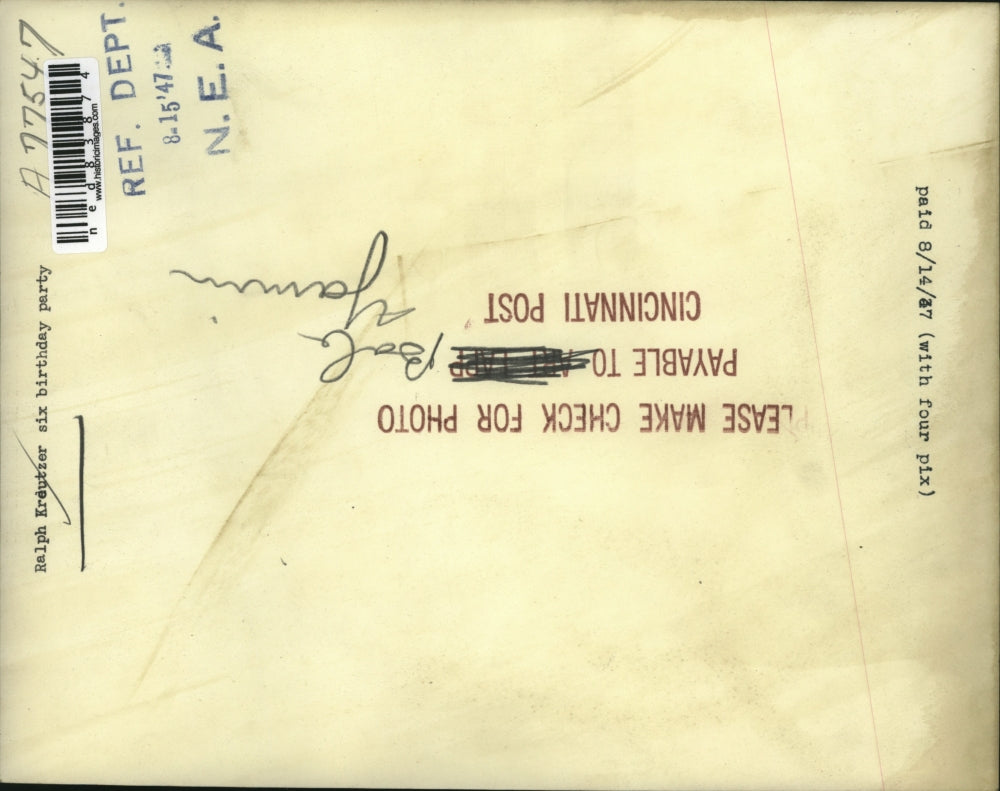 A 77547
ned83874
www.historicimages.com
REF. DEPT.
8-15'47
N. E. A.
Ralph Kreutzer six birthday party
LEASE MAKE CHECK FOR PHOTO
PAYABLE TO Bob
Yamin
CINCINNATI POST
paid 8/14/47 (with four pix)